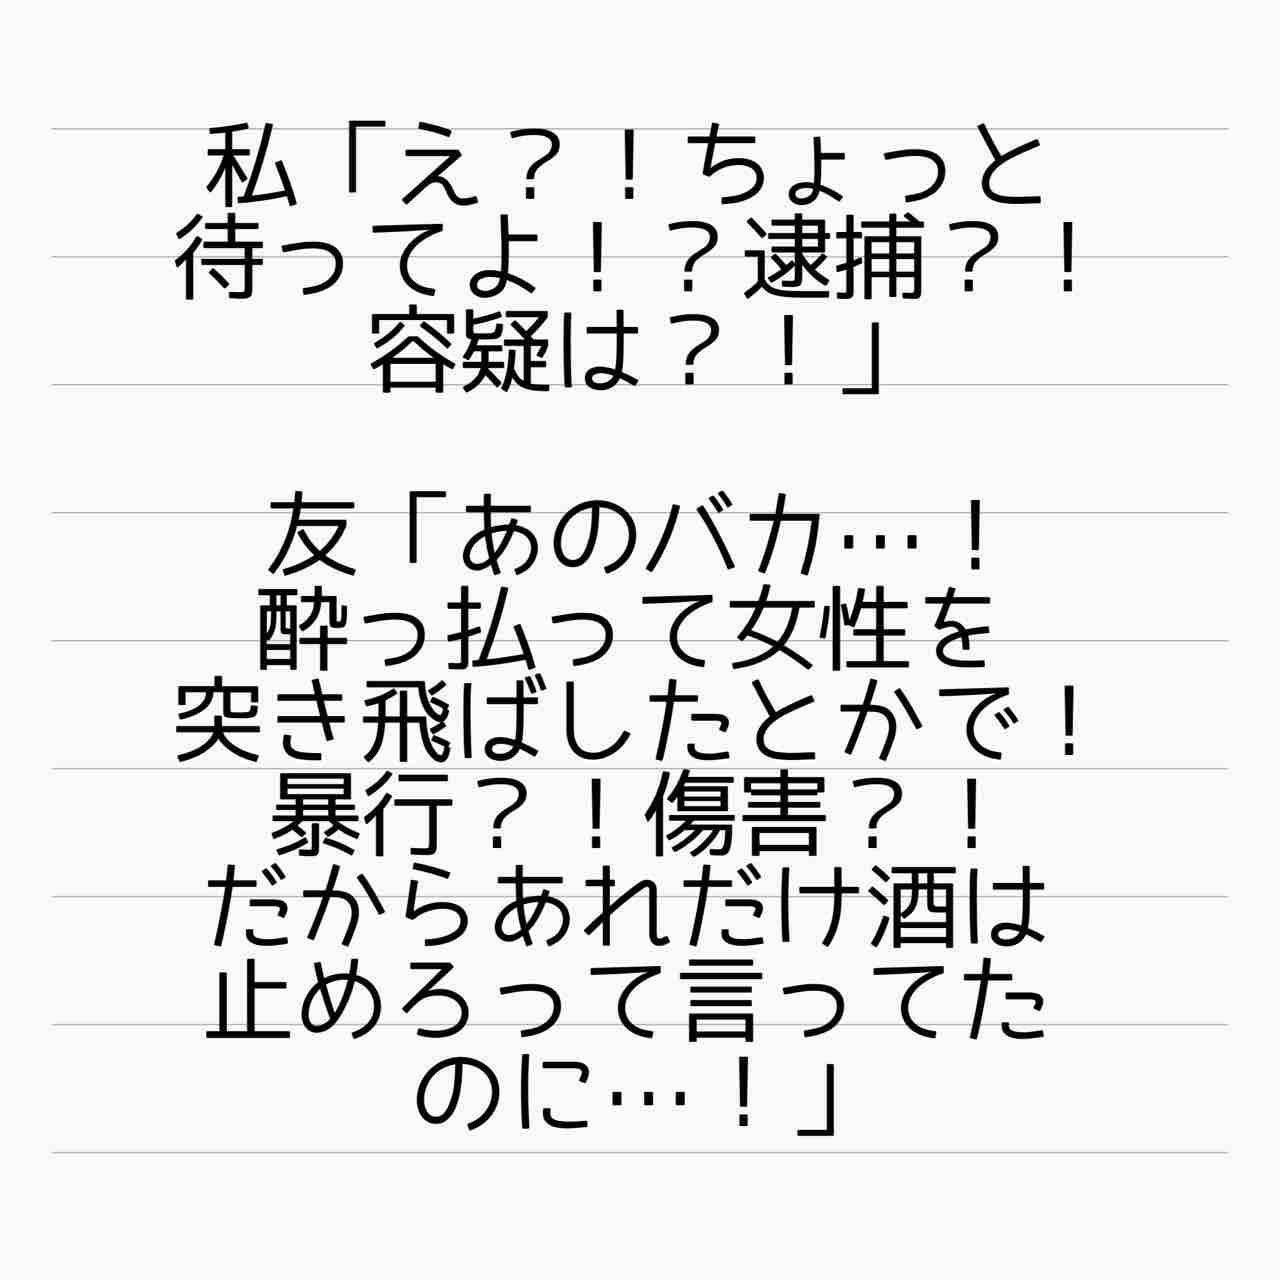 私「え？！ちょっと
待ってよ！？逮捕？！
容疑は？！」
友「あのバカ…！
酔っ払って女性を
突き飛ばしたとかで！
暴行？！傷害？！
だからあれだけ酒は
止めろって言ってた
のに…！」